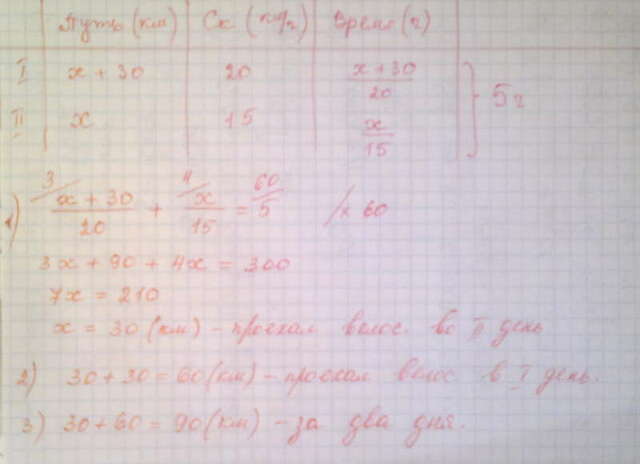 Путь (км) Ск (км/ч) Время (ч)
I x + 30 20 x + 30 / 20
II x 15 x / 15 } 5 ч
1) 3/ x + 30 / 20 + 4/ x / 15 = 60/ 5 / x 60
3x + 90 + 4x = 300
7x = 210
x = 30 (км) – проехал велос. во II день
2) 30 + 30 = 60 (км) – проехал велос в I день.
3) 30 + 60 = 90 (км) – за два дня.